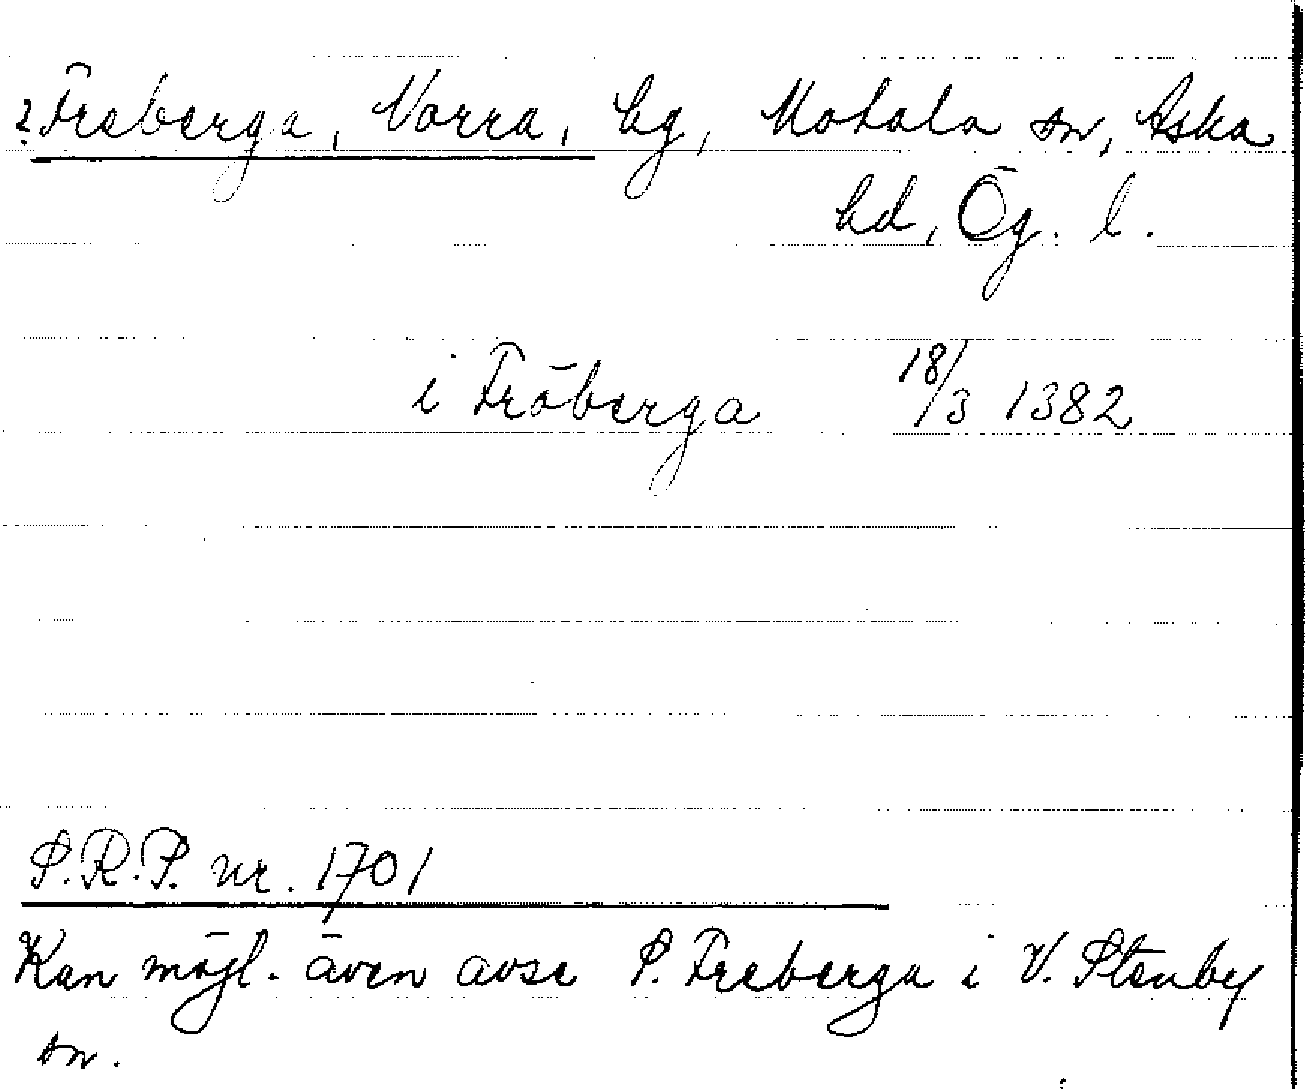 ?Freberga, Norra, by, Motala sn, Aska
hd, Ög. l.
i Fröberga 18/3 1382
S.R.P. nr. 1701
Kan möjl. även avse S. Freberga i V. Stenby
sn.